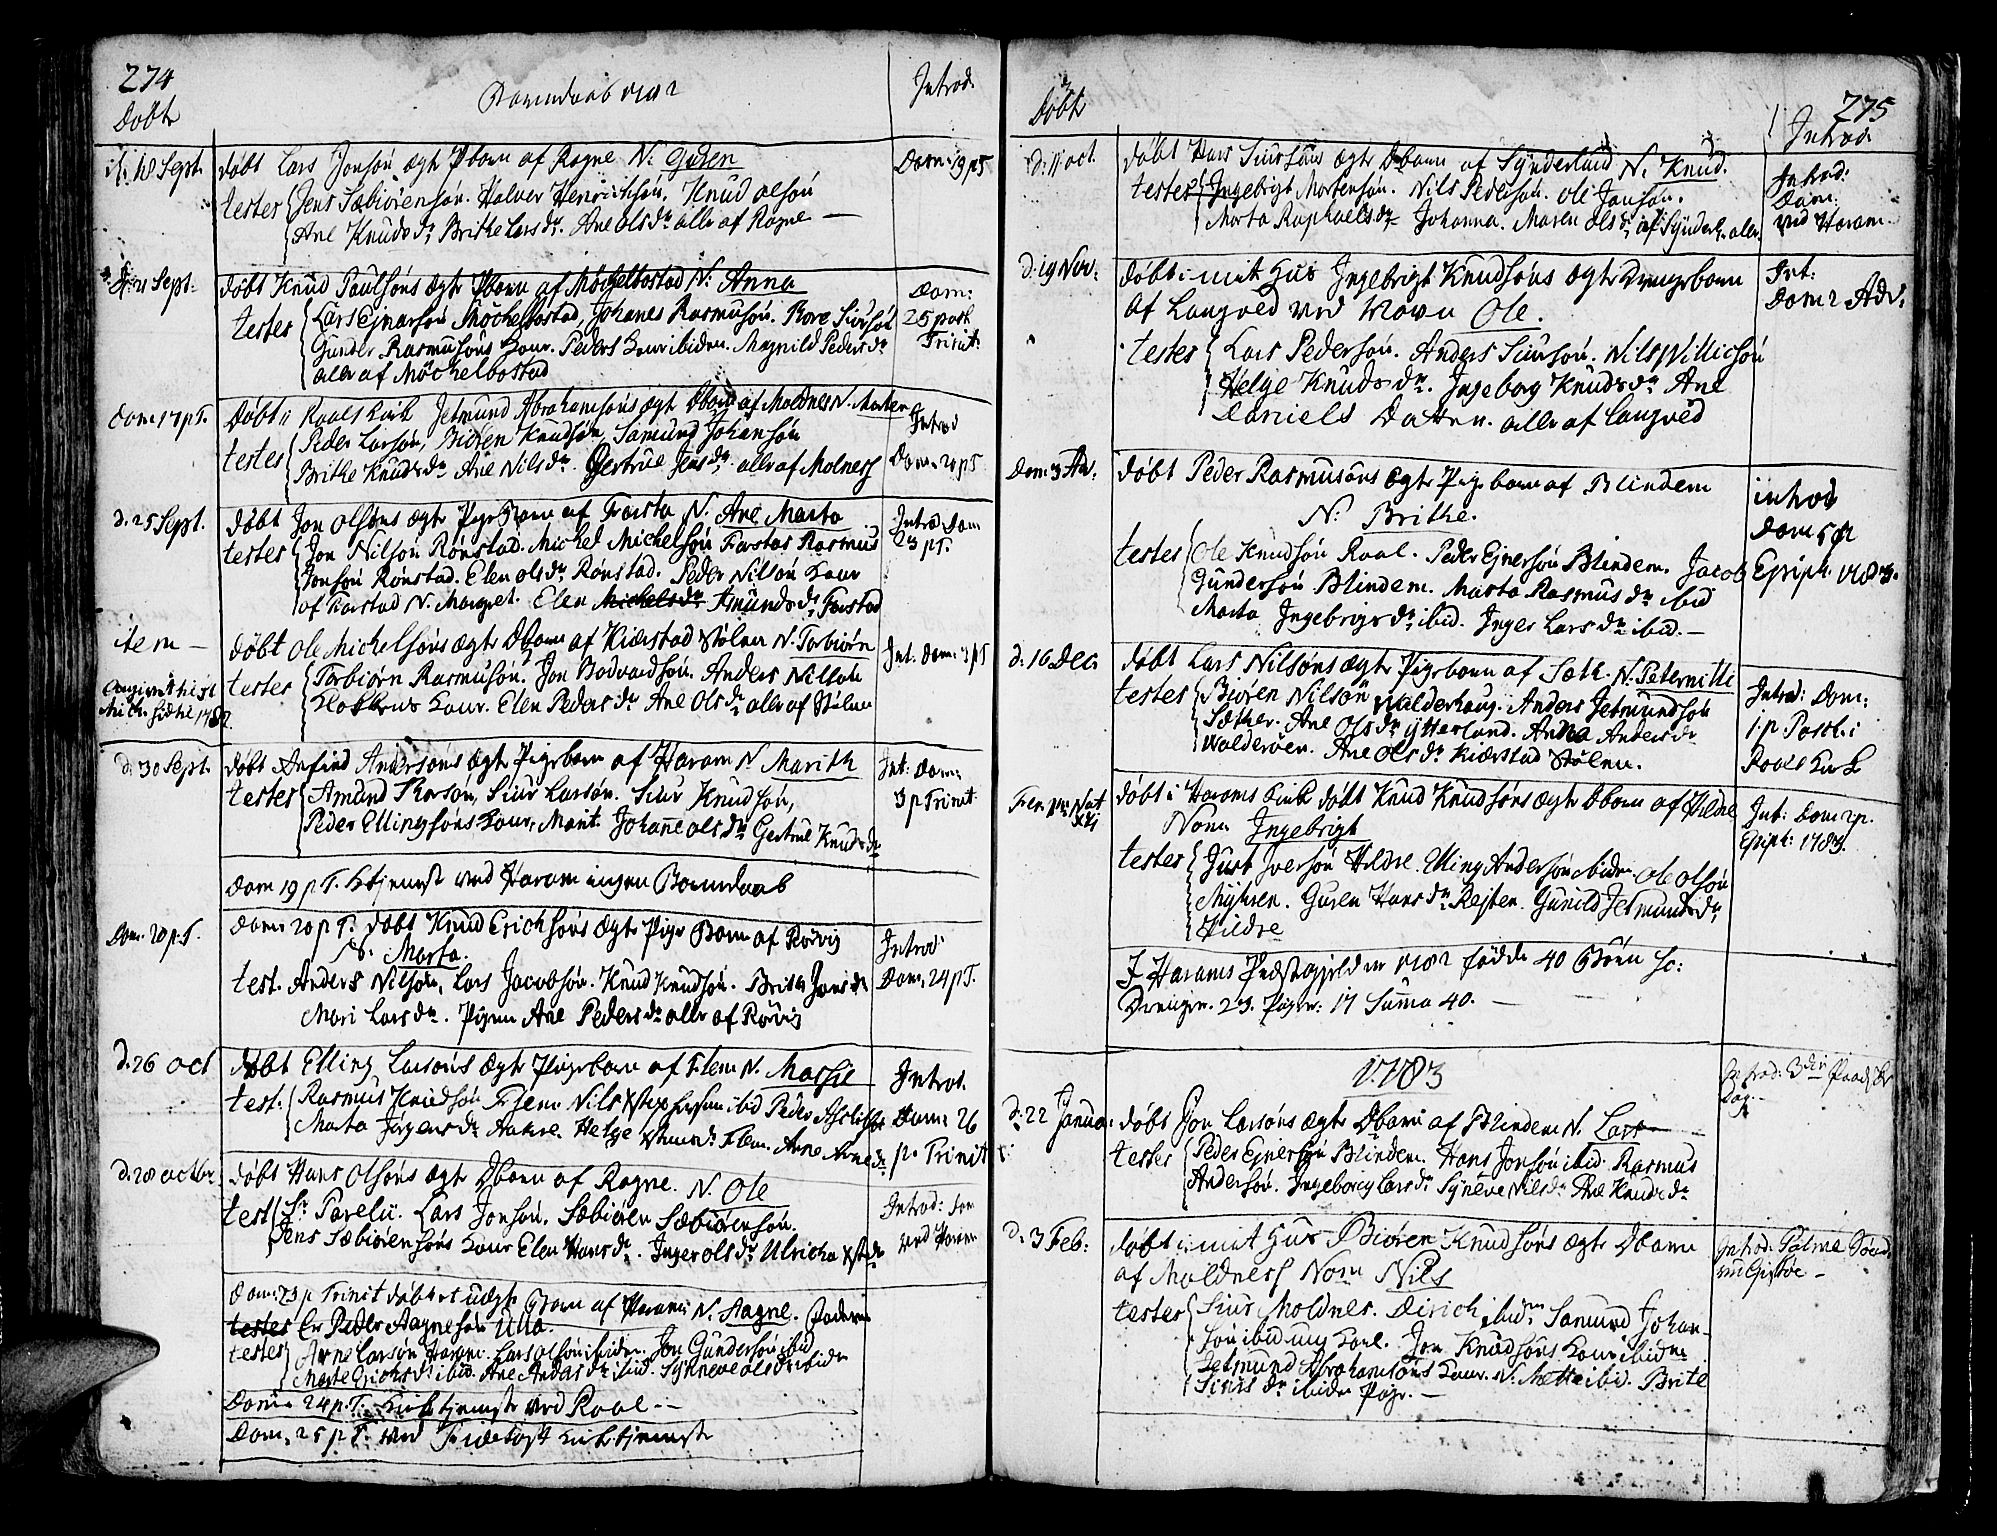 274
Døbte
Barnedaab 1782
Introd.
d. 18 Sept.
døbt Lars Jonsøn ægte Pbarn af Rogne N. Guren
Dom: 19 p T
testes Jens Sæbiørensøn. Halver Henrichsøn. Knud olsøn
Ane Knudsdr. Brithe Larsdr. Ane olsdr alle af Rogne —
d. 21 Sept.
døbt Knud Paulsøns ægte Pbarn af Möchelbostad N. Anna
Dom:
25 post
Trinit:
testes Lars Ejnarsøn Möchelbostad, Johanes Rasmusøn. Rore Siursøn
Gunder Rasmusøns Kone. Peders Kone ibidem. Magnild Pedersdr
alle af Möchelbostad
Dom 17 p T.
Døbt i Roals Kirk Jetmund Abrahamsøns ægte Dbarn af Moldnes N. Morten
Introd
Dom. 20 p T
testes Peder Larsøn, Biøren Knudsøn, Samund Johansøn
Brithe Knudsdr. Ane Nilsdr. Gertrue Jensdr. alle af Molness
d. 25 Sept.
døbt Jon Olsøns ægte Pige Barn af Farsta N. Ane Marta
Introd Dom
23 p T.
testes Jon Nilsøn Rönstad. Michel Michelsøn Farstas Rasmus
Jonsøn Rönstad. Elen olsdr Rönstad. Peder Nilsøn Kone
af Farstad N. Margret. Elen Michelsdr Amundsdr Farstad
item —
døbt Ole Michelsøns ægte Dbarn af Kierstad Stølen N. Torbiørn
Int. Dom. 3 p T
testes Torbiørn Rasmusøn. Jon Bodvardsøn. Anders Nilsøn
Klokkens Kone. Elen Pedersdr Ane Olsdr alle af Stølen
d. 30 Sept.
døbt Arfind Andersøns ægte Pigebarn af Haram N. Marith
Int: Dom:
3 p Trinit.
testes Amund Iversøn, Siur Larsøn. Siur Knudsøn,
Peder Ellingsøns Kone, Marit. Johane olsdr Gertrue Knudsdr
Dom 19 p T. Ktjenest ved Haram ingen Barnedaab
Dom. 20 p. T.
Dom: 20 p T. døbt Knud Erichsøns ægte Pige Barn af Rövig
N. Marta.
Introd
Dom. 24 p T.
test. Anders Nilsøn, Lars Jacobsøn. Knud Knudsøn. Brith Jonsdr
Mari Larsdr. Pigen Ane Pedersdr alle af Rövig
d. 26 oct
døbt Elling Larsøns ægte Pigebarn af Flem N. Massie
Introd.
Dom: 26
p. Trinit
test: Rasmus Knudsøn Fjem. Nils ibid Peder
Marta Jörgensdr Aakre. Helge dr Flem. Anne
d. 28 octbr.
døbt Hans Olsøns ægte Dbarn af Rogne. N. Ole
Introd: Dom
ved Haram
test Sr Parelii. Lars Jonsøn. Sæbiøren Sæbiørensøn.
Jens Sæbiørensøns Kone Elen Hansdr. Inger olsdr Ulricha
Dom: 23 p Trinit døbt et uægte Barn af Haram N. Aagne. Faderen
testes Er Peder Aagnesøn Ulla.
testes Arne Larsøn Haram. Lars olsøn ibidem. Jon Gundersøn ibid
Marte Erichsdr ibid. Ane Andersdr ibid. Synneve olsdr ibidem
Dom: 24 p. T. Kirketjeneste ved Roal —
Dom. 25 p T. ved Kirketjeneste
Døbte
275
Introd.
d. 11 oct.
døbt Hans Siursøns ægte Dbarn af Synderland N. Knud.
Introd:
Dom:
ved Haram
testes Ingebrigt Mortensøn. Nils Pedersøn. Ole Jonsøn.
Marta Raphaelsdr Johanna. Maren olsdr af Synderl. alle
d. 19 Nov:
døbt i mit Hus Ingebrigt Knudsøns ægte Drengebarn
af Langved ved Navn Ole.
Int:
Dom 2 Adv:
testes Lars Pedersøn. Anders Siursøn. Nils Willicsøn
Helge Knudsdr. Ingeborg Knudsdr Ane
Daniels Datter. alle af Langved
Dom 3 Adv.
døbt Peder Rasmusøns ægte Pigebarn af Blindem
N. Brithe.
introd
Dom 5 p
Epiph: 1783.
testes Ole Knudsøn Roal. Peder Ejnersøn Blindem. Jacob
Gundersøn Blindem. Marta Rasmusdr ibid
Marta Ingebrigsdr ibid. Inger Larsdr ibid. —
d. 16 Dec
døbt Lars Nilsøns ægte Pigebarn af Sæth. N. Peternilli
Introd: Dom:
1 p Pasch: i
Roals Kirk
testes Biøren Nilsøn Walderhoug. Anders Jetmundsøn
Sæther. Ane Olsdr Ytterland. Anna Andersdr
Walderøen. Ane olsdr Kierstad Stølen.
døbt i Harams Kirk døbt Knud Knudsøns ægte Dbarn af Hildre
Nom. Ingebrigt
Int: Dom 2 p.
Epiph: 1783.
testes Just Iversøn Hildre. Elling Andersøn ibidem. Ole Olsøn
Myhren. Guren Hansdr Rejten. Gunild Jetmundsdr
Hildre
I Harams Præstegjeld er 1782 fødde 40 Børn sc:
Drenge. 23. Piger: 17 Summa 40. —
1783
d. 22 Janua:
døbt Jon Larsøns ægte Dbarn af Blindem N. Lars
Introd: 3die Paaske
Dag. —
testes Peder Ejnersøn Blindem. Hans Jonsøn ibid. Rasmus
Andersøn. Ingeborg Larsdr Syneve Nilsdr Ane Knudsdr
d. 3 Feb:
døbt i mit Hus Biøren Knudsøns ægte Dbarn
af Moldness Nom Nils
Introd: Palme Sønd.
ved Gidsøe —
testes Siur Moldnes. Dirich ibidm Samund Johan-
søn ibid ung Karl. Jon Knudsøns Kone ibidem
Jetmund Abrahamsøns Kone. N: Mette ibid. Brite
Siursdr ibidem Pige. —